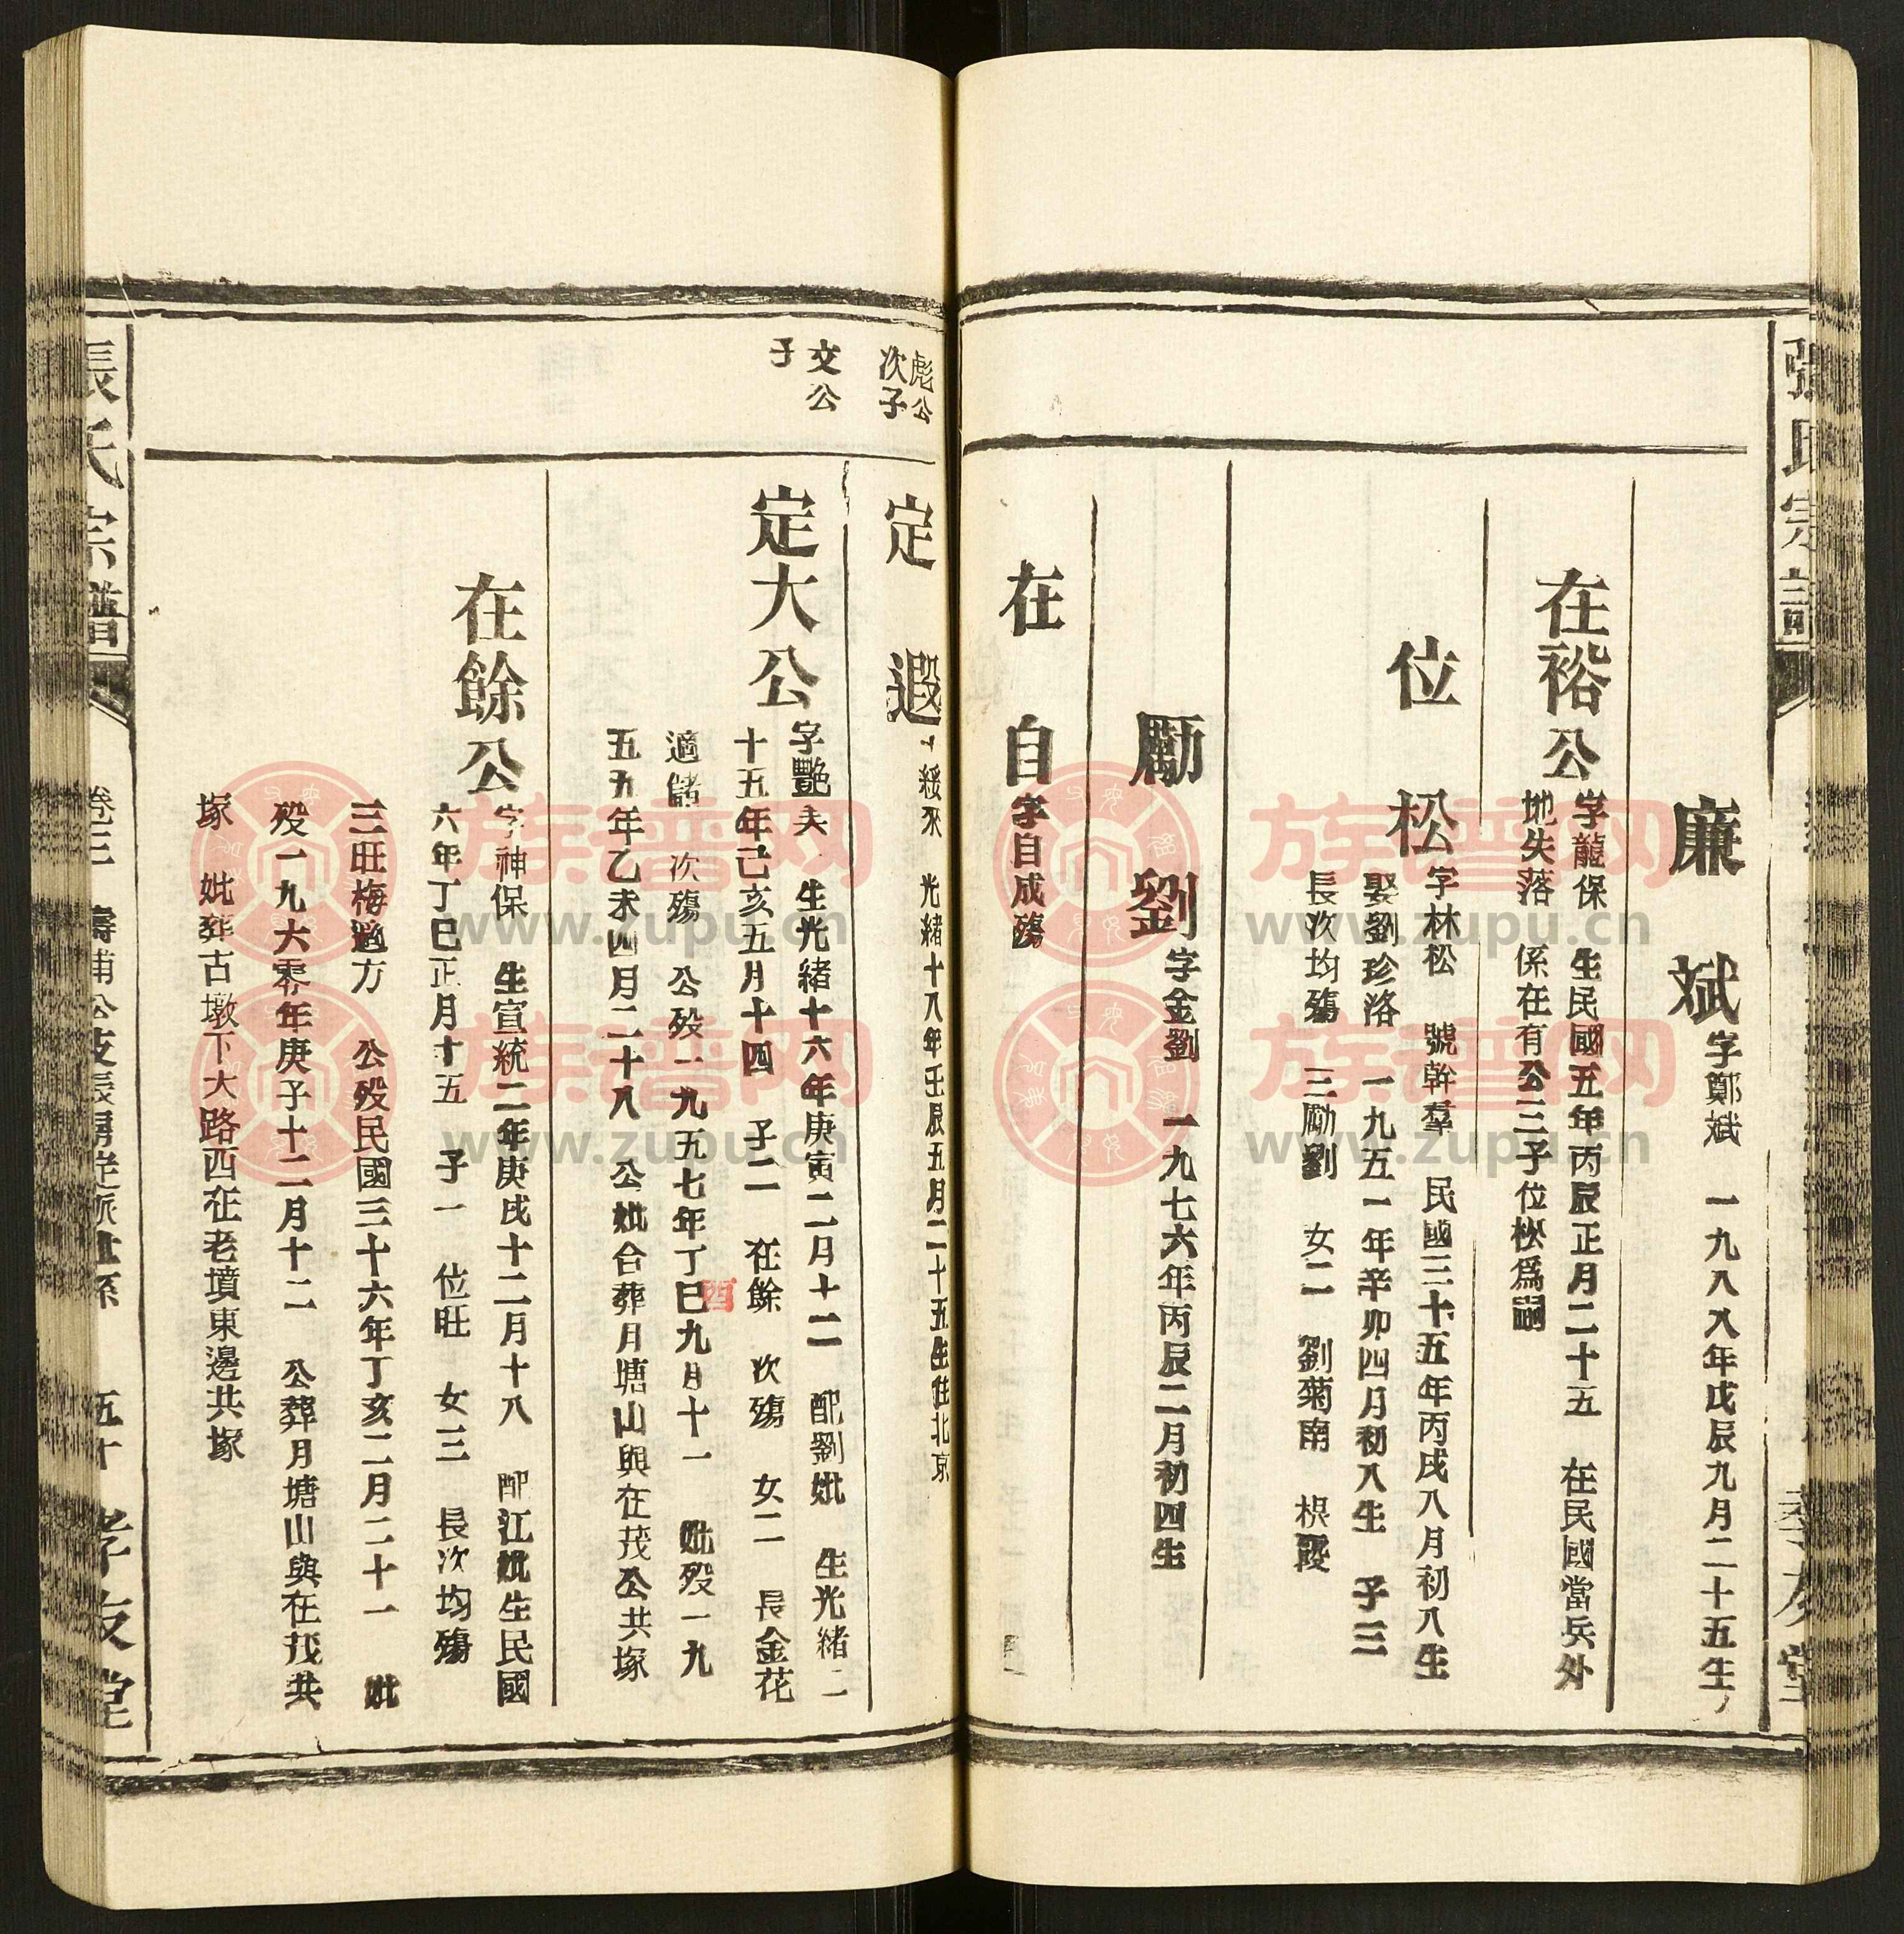 張氏宗譜
孝友堂
廉斌
字鄭斌 一九八八年戊辰九月二十五生
在裕公
字龍保 生民國五年丙辰正月二十五 在民國當兵外
地失落 係在有公三子位松爲嗣
位松
字林松 號幹羣 民國三十五年丙戌八月初八生
娶劉珍洛 一九五一年辛卯四月初八生 子三
長次均殤 三勵劉 女二 劉菊南
勵劉
字金劉 一九七六年丙辰二月初四生
在自
字自成殤
彪公
次子
定遐
綏來 光緒十八年壬辰五月二十五生住北京
文公
子
定大公
字艷夫 生光緒十六年庚寅二月十二 配劉妣 生光緒二
十五年己亥五月十四 子二 在餘 次殤 女二 長金花
適儲 次殤 公歿一九五七年丁巳九月十一 妣歿一九
酉
五五年乙未四月二十八 公妣合葬月塘山與在茂公共塚
在餘公
字神保 生宣統二年庚戌十二月十八 配江妣生民國
六年丁巳正月十五 子一 位旺 女三 長次均殤
三旺梅適方 公歿民國三十六年丁亥二月二十一 妣
歿一九六零年庚子十二月十二 公葬月塘山與在茂共
塚 妣葬古墩下大路西在老墳東邊共塚
張氏宗譜
卷三 壽甫公支長房定派世系 五十 孝友堂
族譜网
www.zupu.cn
族譜网
www.zupu.cn
族譜网
www.zupu.cn
族譜网
www.zupu.cn